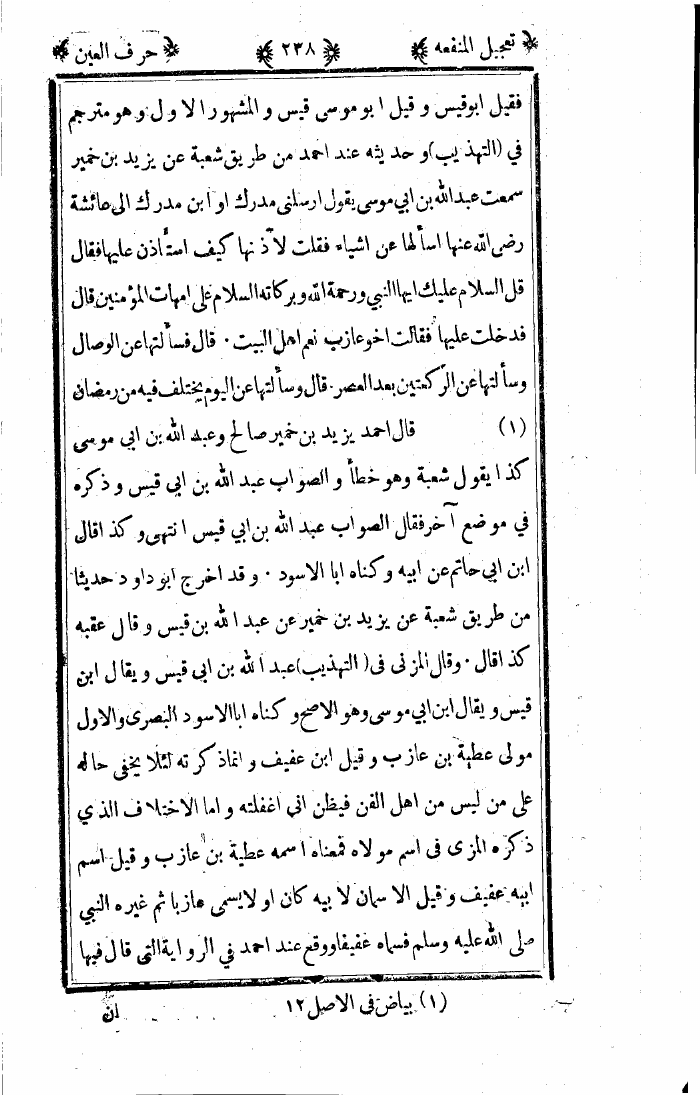 تعجيل المنفعه ﴿٢٣٨﴾ حرف العين
فقيل ابوقيس و قيل ابو موسى قيس و المشهور الاول و هو مترجم
في (التهذيب) و حديثه عند احمد من طريق شعبة عن يزيد بن خمير
سمعت عبدالله بن ابي موسى يقول ارسلنى مدرك او ابن مدرك الى عائشة
رضى الله عنها اسألها عن اشياء فقلت لآذنها كيف استأذن عليها فقال
قل السلام عليك ايها النبي و رحمة الله و بركاته السلام على امهات المؤمنين قال
فدخلت عليها فقالت اخو عازب نعم اهل البيت ٠ قال فسألتها عن الوصال
وسألتها عن الركعتين بعد العصر ٠ قال و سألتها عن اليوم يختلف فيه من رمضان
(١) قال احمد يزيد بن خمير صالح وعبد الله بن ابي موسى
كذا يقول شعبة وهو خطأ و الصواب عبد الله بن ابى قيس و ذكره
في موضع آخر فقال الصواب عبد الله بن ابي قيس انتهى و كذا قال
ابن ابي حاتم عن ابيه و كناه ابا الاسود ٠ و قد اخرج ابو داود حديثا
من طريق شعبة عن يزيد بن خمير عن عبد الله بن قيس و قال عقبه
كذا قال ٠ وقال المزنى فى (التهذيب) عبد الله بن ابى قيس و يقال ابن
قيس و يقال ابن ابي موسى وهو الاصح و كناه ابا الاسود البصرى والاول
مولى عطية بن عازب و قيل ابن عفيف و انما ذكرته لئلا يخفى حاله
على من ليس من اهل الفن فيظن انى اغفلته و اما الاختلاف الذي
ذكره المزى فى اسم مولاه فمعناه اسمه عطية بن عازب و قيل اسم
ابيه عفيف و قيل الاسمان لابيه كان اولا يسمى عازبا ثم غيره النبي
صلى الله عليه وسلم فسماه عفيفا و وقع عند احمد في الرواية التى قال فيها
(١) بياض فى الاصل ١٢
ان